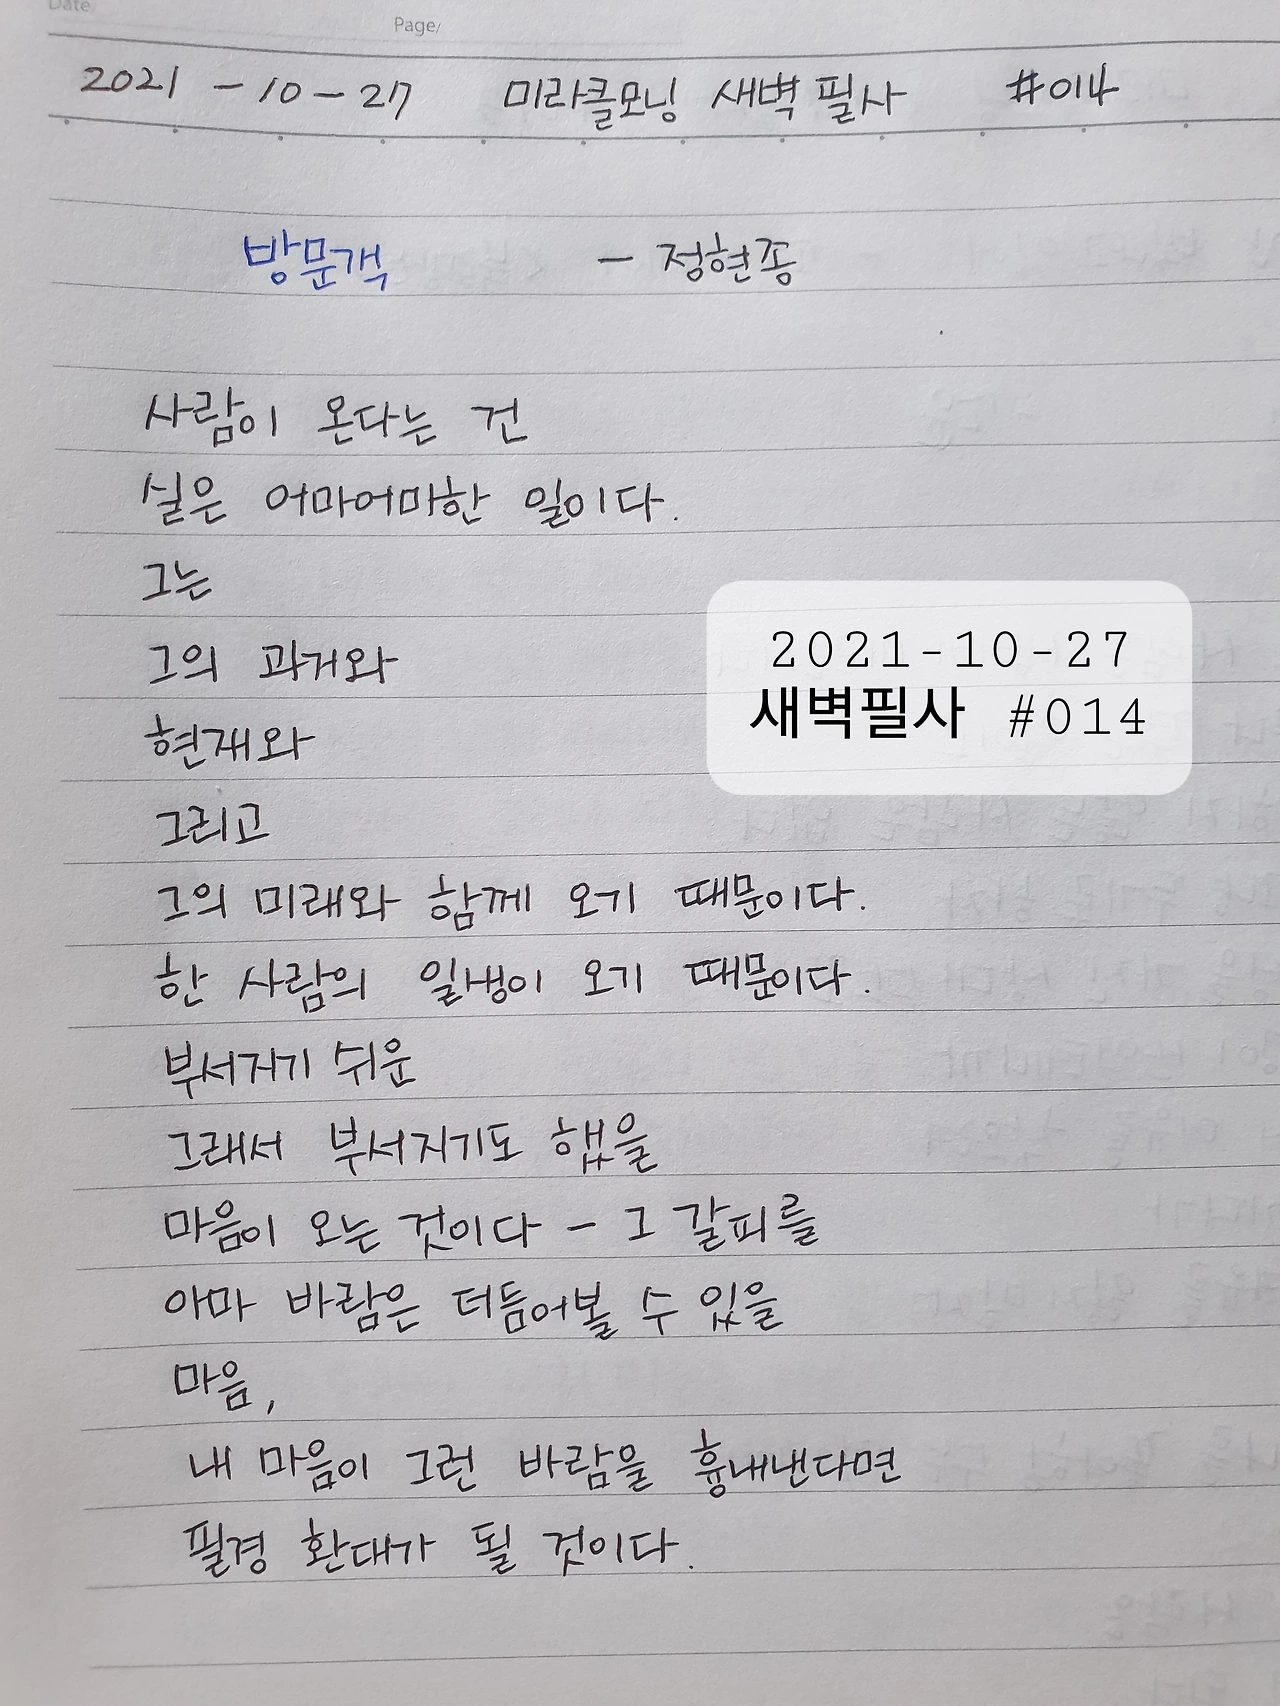 Date
Page/
2021 - 10 - 27 미라클모닝 새벽 필사 #014
방문객 - 정현종
사람이 온다는 건
실은 어마어마한 일이다.
그는
그의 과거와
현재와
그리고
그의 미래와 함께 오기 때문이다.
한 사람의 일생이 오기 때문이다.
부서지기 쉬운
그래서 부서지기도 했을
마음이 오는 것이다 - 그 갈피를
아마 바람은 더듬어볼 수 있을
마음,
내 마음이 그런 바람을 흉내낸다면
필경 환대가 될 것이다.
2021-10-27
새벽필사 #014